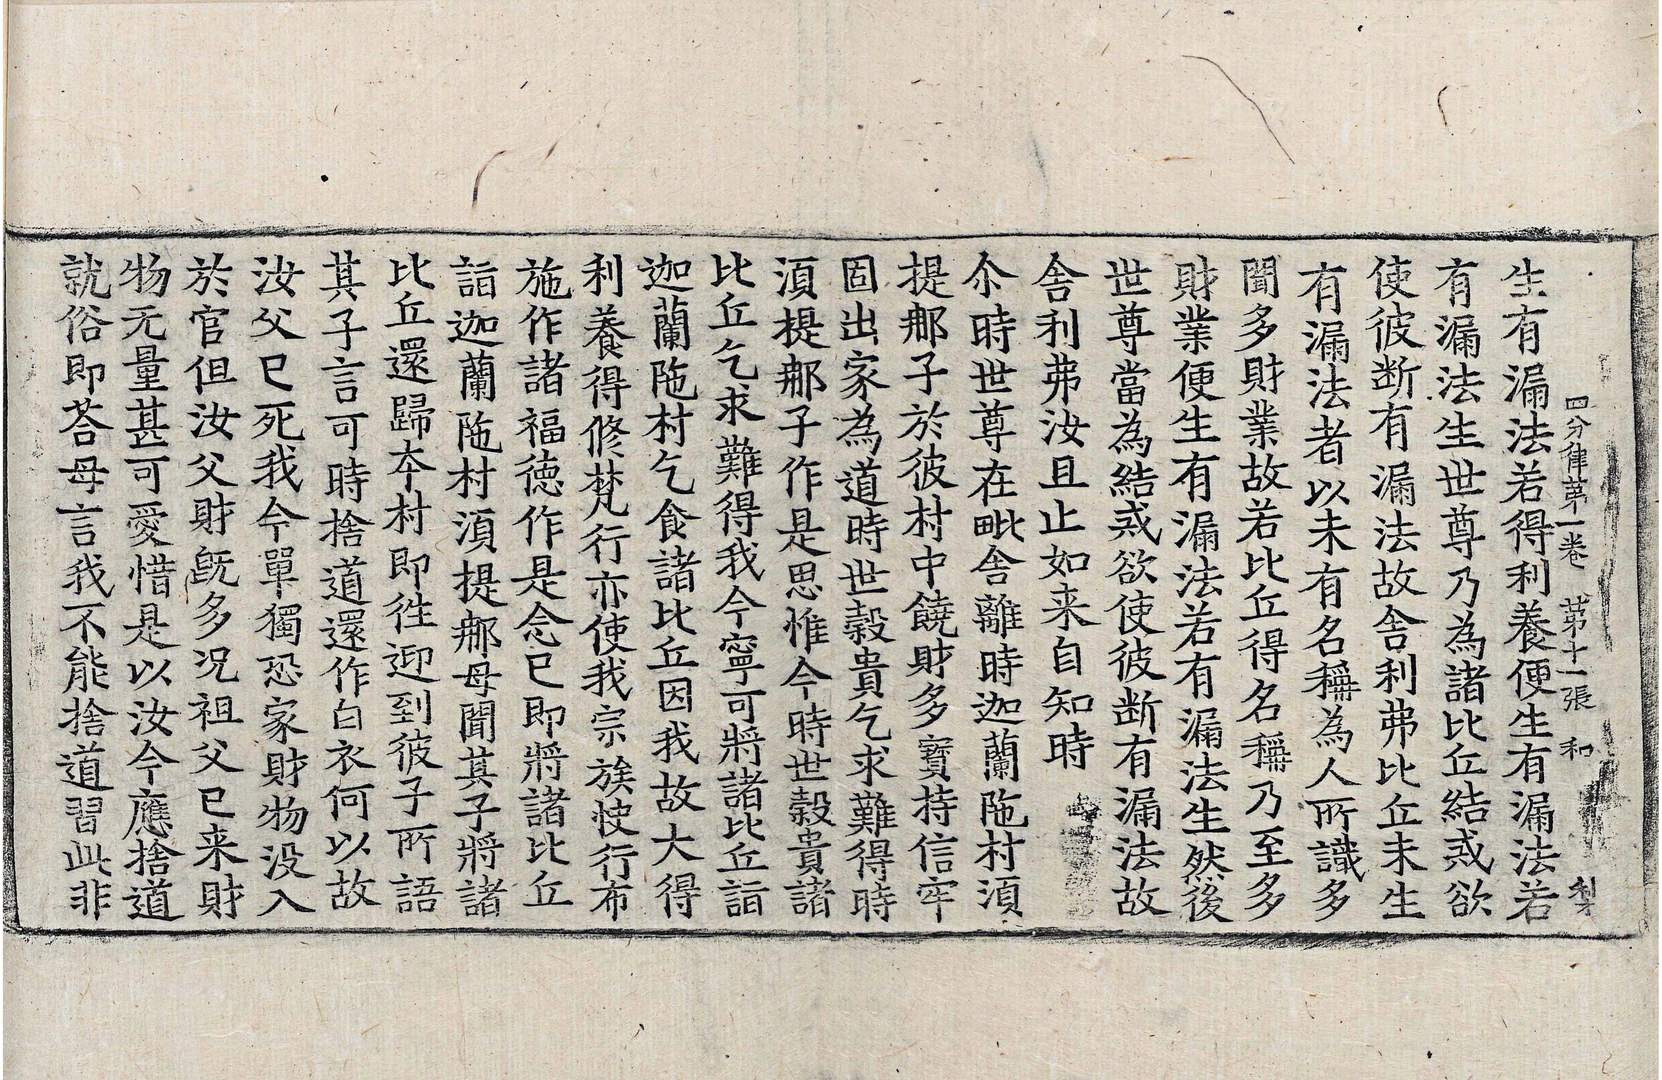 四分律第一卷 第十一張 和
生有漏法若得利養便生有漏法若
有漏法生世尊乃為諸比丘結戒欲
使彼断有漏法故舍利弗比丘未生
有漏法者以未有名稱為人所識多
聞多財業故若比丘得名稱乃至多
財業便生有漏法若有漏法生然後
世尊當為結戒欲使彼断有漏法故
舎利弗汝且止如来自知時
尒時世尊在毗舎離時迦蘭陁村湏
提那子於彼村中饒財多寳持信牢
固出家為道時世穀貴乞求難得時
湏提那子作是思惟今時世穀貴諸
比丘乞求難得我今寧可將諸比丘詣
迦蘭陁村乞食諸比丘因我故大得
利養得修梵行亦使我宗族快行布
施作諸福德作是念已即將諸比丘
詣迦蘭陁村湏提那母聞其子將諸
比丘還歸夲村即徃迎到彼子所語
其子言可時捨道還作白衣何以故
汝父已死我今單獨恐家財物没入
於官但汝父財旣多况祖父已来財
物无量甚可愛惜是以汝今應捨道
就俗即荅母言我不能捨道習此非